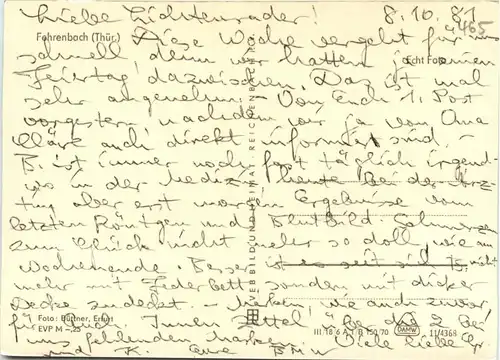 Liebe Lichtenrader! 8.10.81
4465
Fehrenbach (Thür.) Diese Woche vergeht für uns
schnell, denn wir hatten ja einen Echt Foto
Feiertag dazwischen. Das ist mal
sehr angenehm. Von Euch 1. Post
vorgestern nachdem wir ja von Oma
Kläre auch direkt informiert sind.
B. ist immer noch fast täglich irgend-
wo in der Medizin heute bei der Ärz-
tin, aber erst morgen Ergebnisse vom
letzten Röntgen und Blutbild. Schmerzen
zum Glück nicht mehr so doll, wie am
Wochenende. Besser ist es seit sich B. nicht
mehr mit Federbett sondern mit dicker
Decke zudeckt. wie auch zuvor
Foto: Büttner, Erfurt
EVP M -,25
für und Innen
BILD UND HEIMAT REICHENBACH
III/18/6 A 1 B 150/70
DAMW
11/4368
uns fehlenden Marken. Viele liebe Gr.
und K. Eure